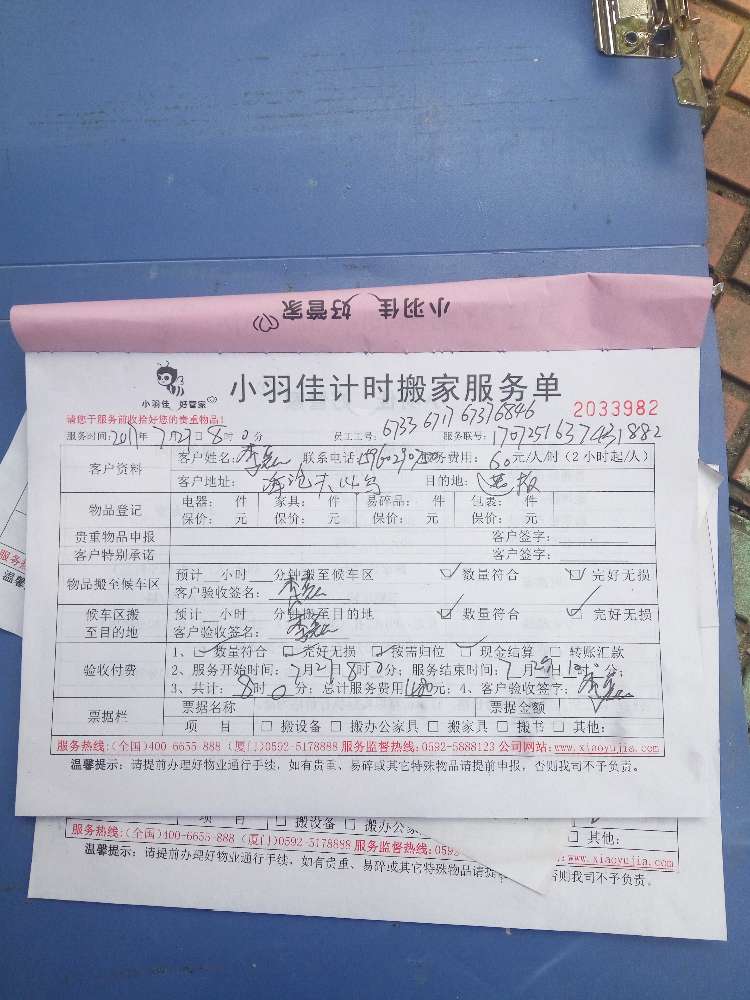 小羽佳 好管家
小羽佳 好管家
小羽佳计时搬家服务单
2033982
请您于服务前收拾好您的贵重物品!
服务时间:2017年7月29日8时0分 员工工号: 6733 6717 6737 6846 服务联号:
客户资料 客户姓名: 联系电话: 服务费用: 60元/人/时 (2小时起/人)
客户地址: 目的地:
物品登记 电器: 件 家具: 件 易碎品: 件 包裹: 件
保价: 元 保价: 元 保价: 元 保价: 元
贵重物品申报 客户签字:
客户特别承诺 客户签字:
物品搬至候车区 预计 小时 分钟搬至候车区 ☑ 数量符合 ☑ 完好无损
客户验收签名:
候车区搬至目的地 预计 小时 分钟搬至目的地 ☑ 数量符合 ☑ 完好无损
客户验收签名:
验收付费 1、☑ 数量符合 ☑ 完好无损 ☑ 按需归位 ☑ 现金结算 □ 转账汇款
2、服务开始时间: 7月29日8时0分; 服务结束时间: 7月29日 时 分;
3、共计: 8时0分; 总计服务费用 元; 4、客户验收签字:
票据栏 票据名称 票据金额
项 目 □ 搬设备 □ 搬办公家具 □ 搬家具 □ 搬书 □ 其他:
服务热线:(全国)400-6655-888 (厦门)0592-5178888 服务监督热线:0592-5888123 公司网站:www.xiaoyujia.com
温馨提示: 请提前办理好物业通行手续, 如有贵重、易碎或其它特殊物品请提前申报, 否则我司不予负责。
项 目 □ 搬设备 □ 搬办公家 □ 其他:
服务热线:(全国)400-6655-888 (厦门)0592-5178888 服务监督热线:059 www.xiaoyujia.com
温馨提示: 请提前办理好物业通行手续, 如有贵重、易碎或其它特殊物品请提 否则我司不予负责。